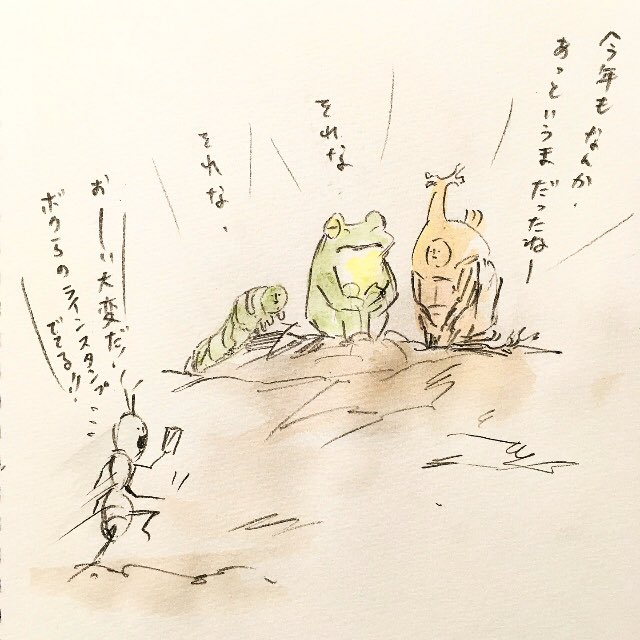 今年もなんか.
あっというまだったねー
それな
それな.
おーい大変だ!
ボクらのラインスタンプ...
でてる!!